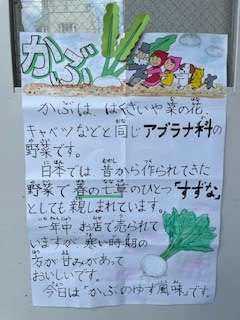 かぶ
かぶは、はくさいや菜の花、
キャベツなどと同じアブラナ科の
野菜です。
日本では昔から作られてきた
野菜で春の七草のひとつ「すずな」
としても親しまれています。
一年中お店で売られて
いますが寒い時期の
方が甘みがあって
おいしいです。
今日は「かぶのゆず風味」です。